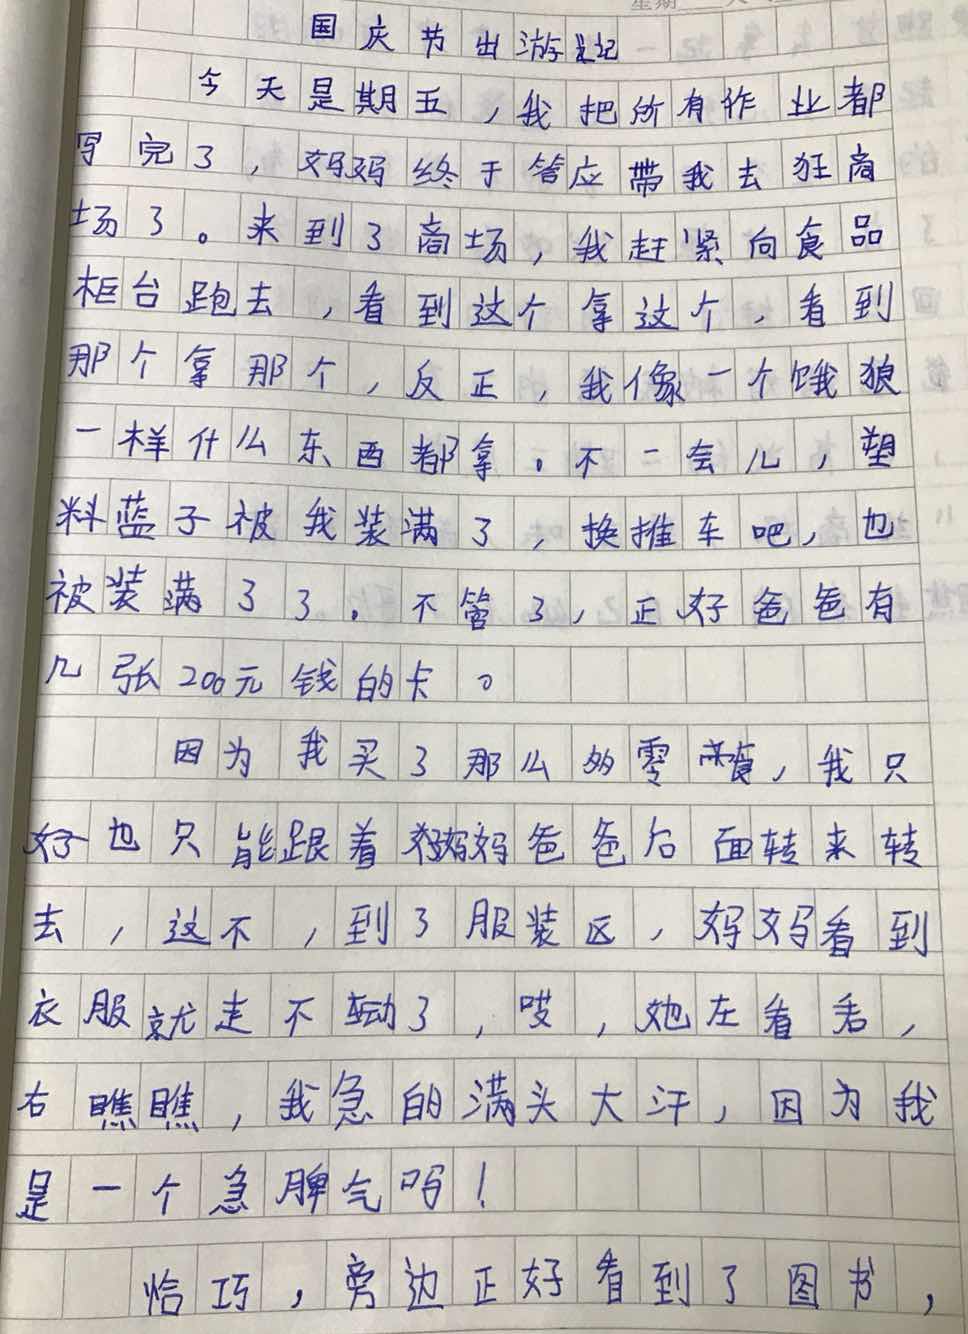 国庆节出游记
今天是期五，我把所有作业都
写完了，妈妈终于答应带我去狂商
场了。来到了商场，我赶紧向食品
柜台跑去，看到这个拿这个，看到
那个拿那个，反正，我像一个饿狼
一样什么东西都拿。不一会儿，塑
料蓝子被我装满了，换推车吧，也
被装满了了。不管了，正好爸爸有
几张200元钱的卡。
因为我买了那么多零食，我只
好也只能跟着妈妈爸爸后面转来转
去，这不，到了服装区，妈妈看到
衣服就走不动了，哎，她左看看，
右瞧瞧，我急的满头大汗，因为我
是一个急脾气吗！
恰巧，旁边正好看到了图书，